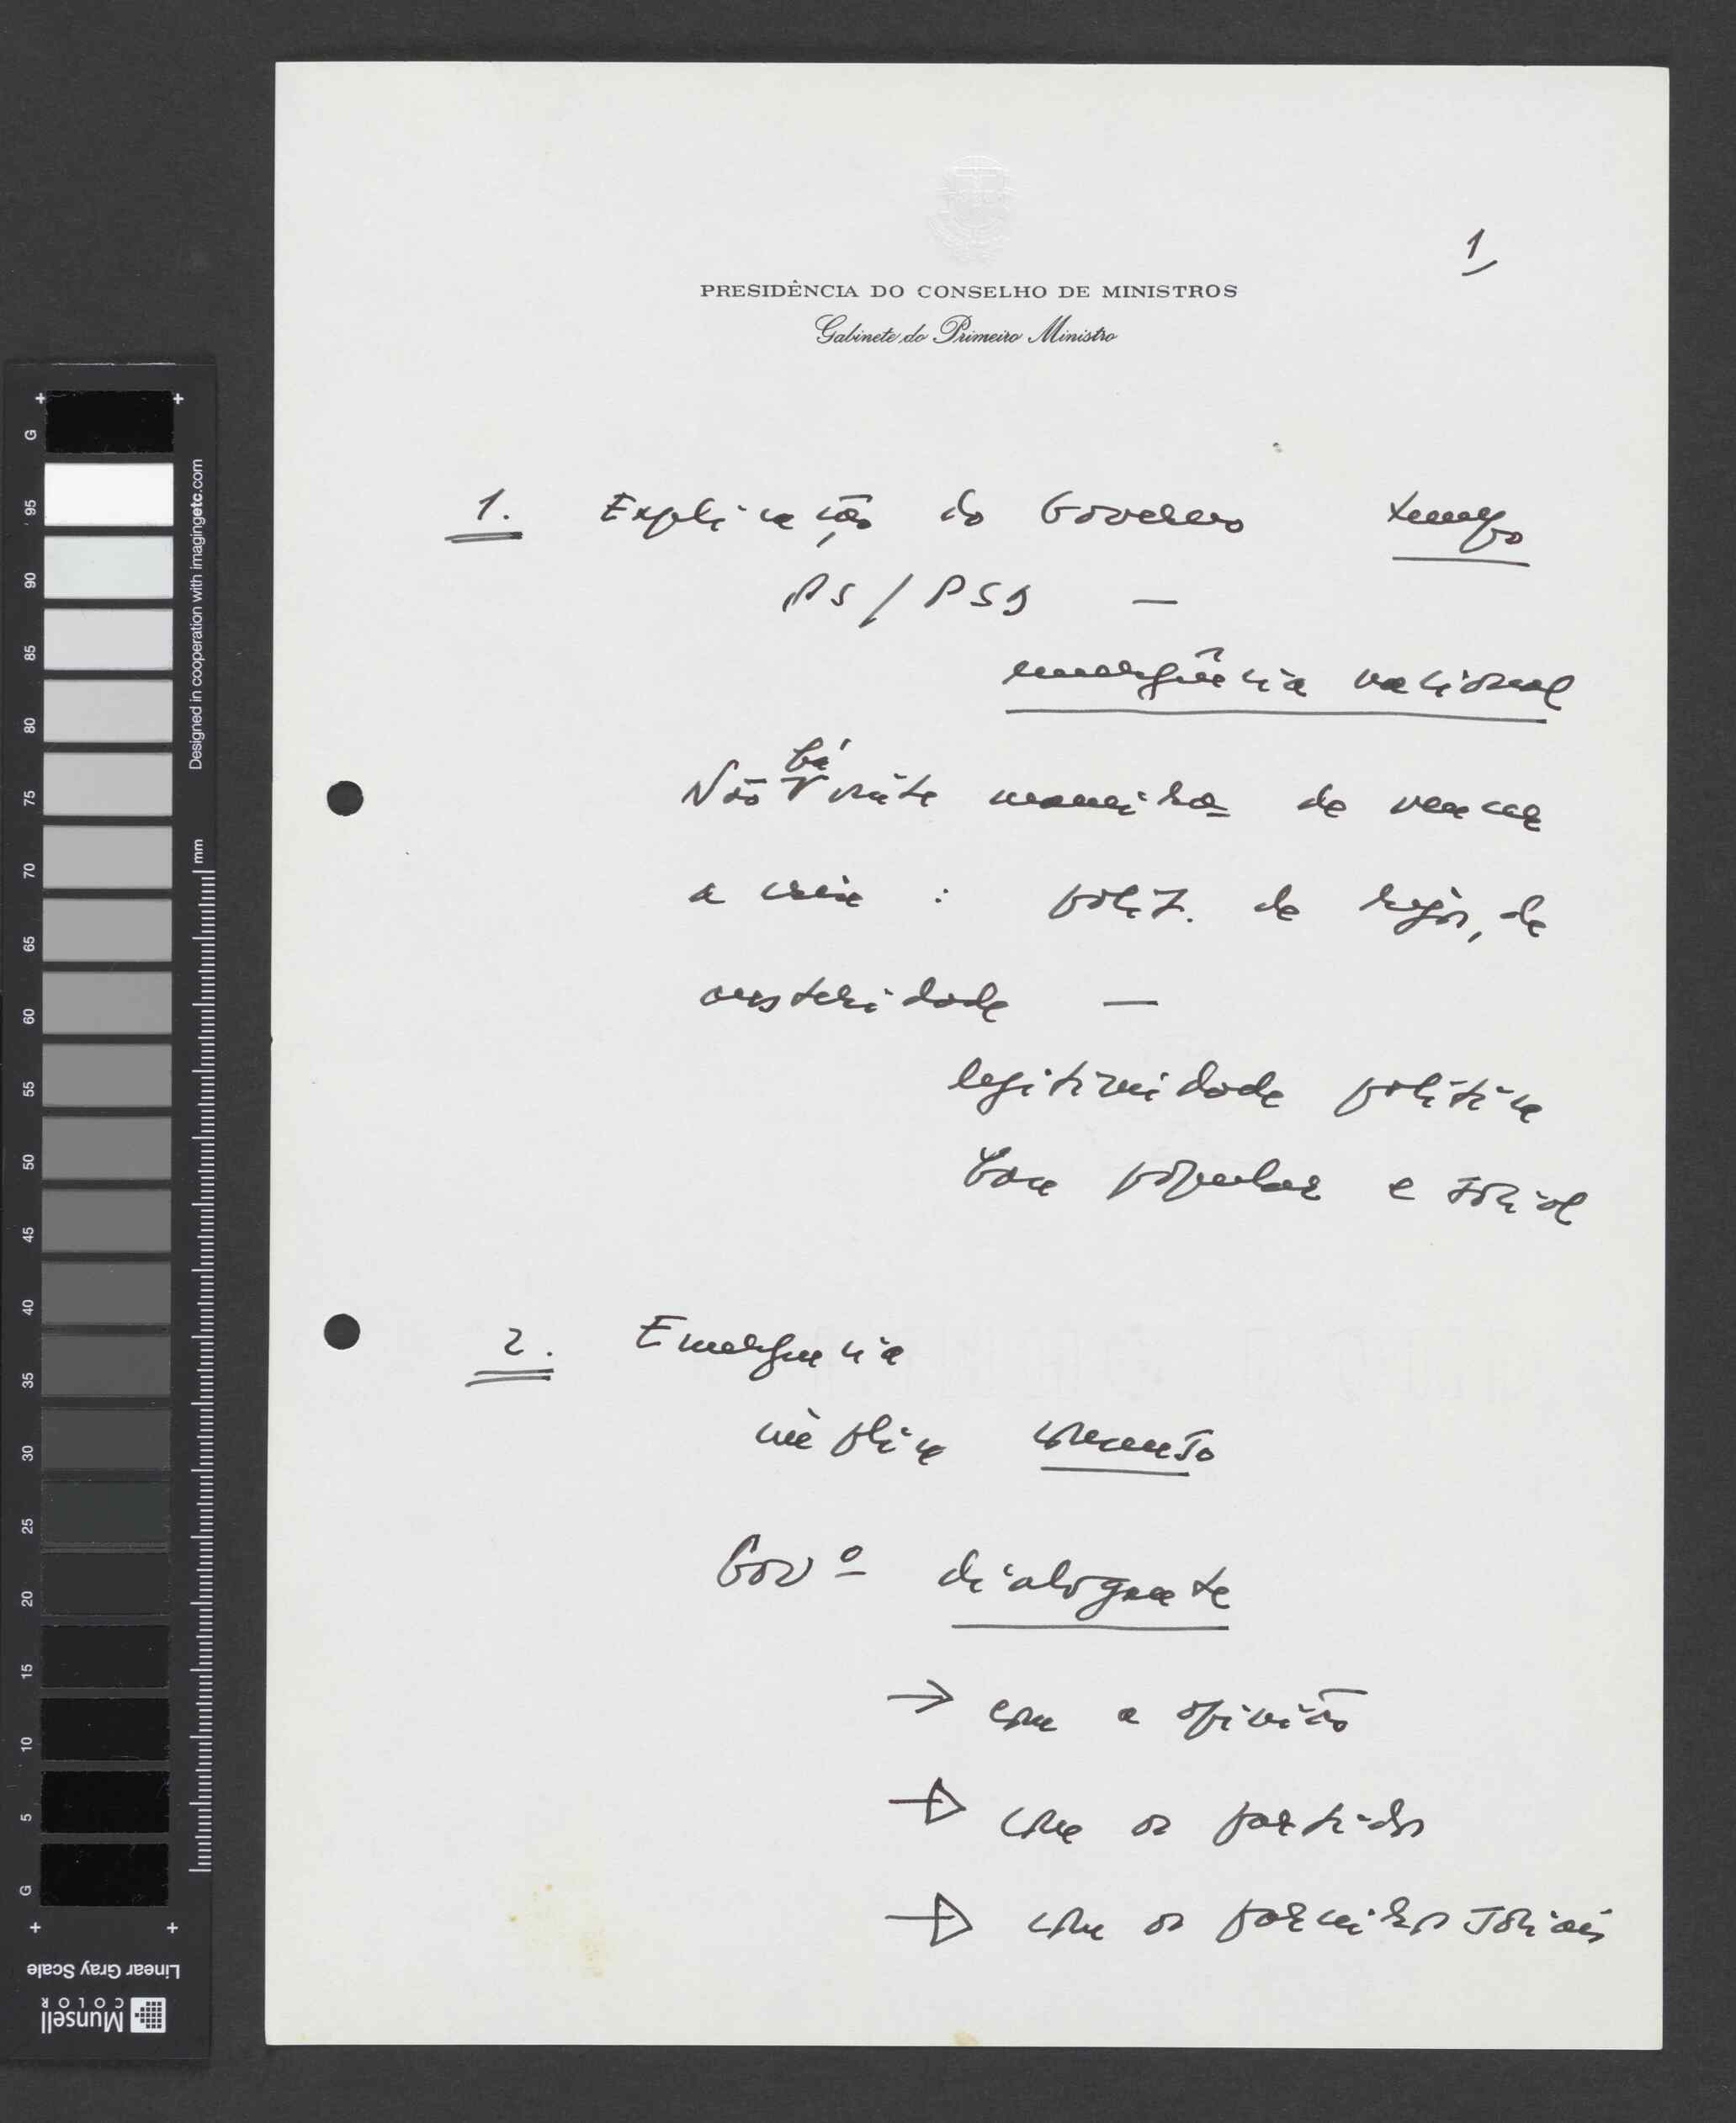 1
PRESIDÊNCIA DO CONSELHO DE MINISTROS
Gabinete do Primeiro Ministro
1. Explicação do Governo tempo
PS / PSD —
emergência nacional
Não há muita maneira de vencer
a crise : polít. de rigor, de
austeridade —
legitimidade política
base popular e social
2. Emergencia
implica consenso
Govº dialogante
→ com a opinião
→ com os partidos
→ com os parceiros sociais
G 95 90 85 80 75 70 65 60 55 50 45 40 35 30 25 20 15 10 5 G
Designed in cooperation with imagingetc.com
mm
Linear Gray Scale
Munsell
COLOR